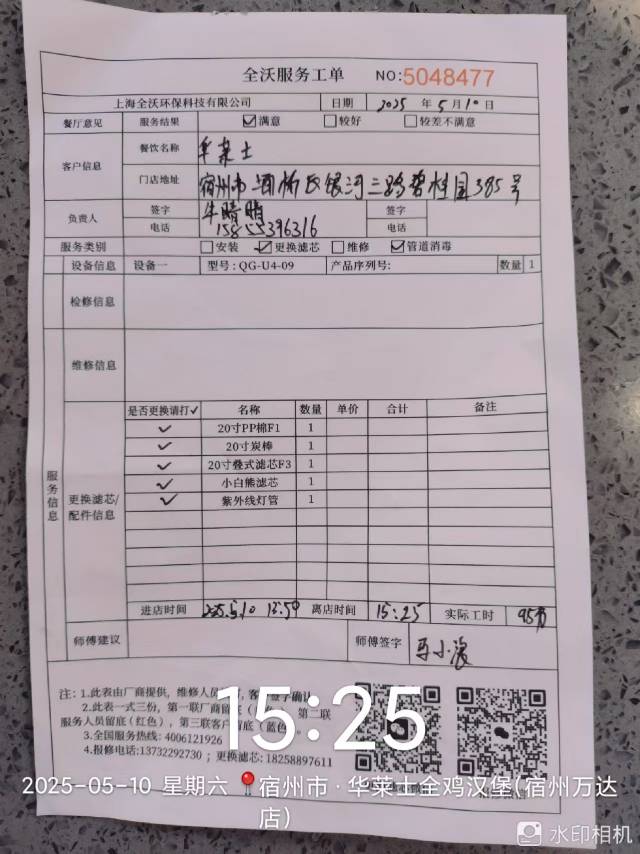 全沃服务工单 NO:5048477
上海全沃环保科技有限公司 日期 2025 年 5 月 10 日
餐厅意见 服务结果 ☑满意 □较好 □较差不满意
客户信息 餐饮名称 华莱士
门店地址 宿州市 桥区银河三路碧桂园385号
负责人 签字 牛晴晴 签字
电话 电话
服务类别 □安装 ☑更换滤芯 □维修 ☑管道消毒
设备信息 设备一 型号:QG-U4-09 产品序列号: 数量 1
检修信息
维修信息
服务信息
更换滤芯/配件信息
是否更换请打✓ 名称 数量 单价 合计 备注
✓ 20寸PP棉F1 1
✓ 20寸炭棒 1
✓ 20寸叠式滤芯F3 1
✓ 小白熊滤芯 1
✓ 紫外线灯管 1
进店时间 离店时间 15:25 实际工时
师傅建议 师傅签字
注:1.此表由厂商提供,维修人员 ,客 签字确认
2.此表一式三份,第一联厂商留底( 第二联
服务人员留底(红色),第三联客户留底(蓝色
3.全国服务热线:4006121926
4.报修电话:13732292730;更换滤芯:18258897611
15:25
2025-05-10 星期六 宿州市·华莱士全鸡汉堡(宿州万达
店)
水印相机